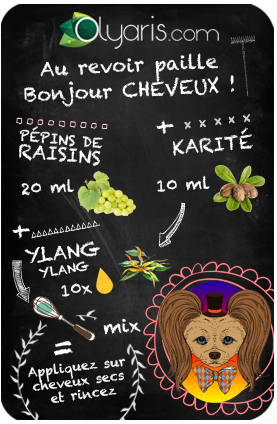 Olyaris.com
Au revoir paille
Bonjour CHEVEUX !
PÉPINS DE
RAISINS
20 ml
+ xxxxx
KARITÉ
10 ml
+
YLANG
YLANG
10x
mix
=
Appliquez sur
cheveux secs
et rincez